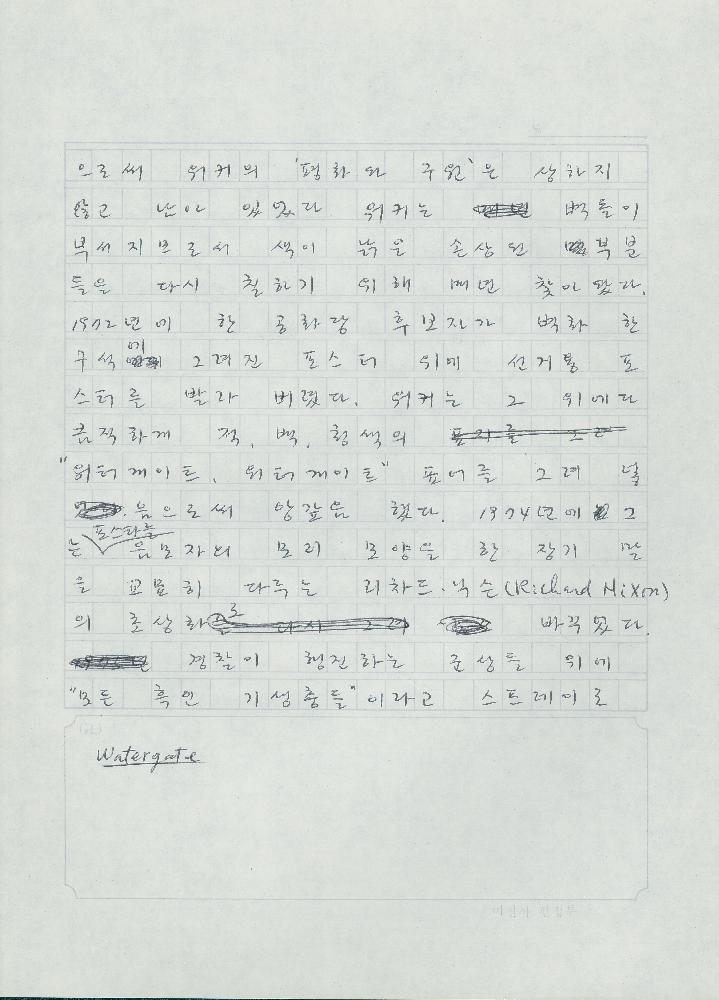 으로써 워커의 '평화와 구원'은 상하지
않고 남아 있었다. 워커는 벽돌이
부서지므로서 색이 낡은 손상된 부분
들을 다시 칠하기 위해 매년 찾아 왔다.
1972년에 한 공화당 후보자가 벽화 한
구석에 그려진 포스터 위에 선거용 포
스터를 발라 버렸다. 워커는 그 위에다
큼직하게 적, 백, 청색의 표지를
"워터게이트, 워터게이트" 표어를 그려 넣
음으로써 앙갚음 했다. 1974년에 그
는 포스타를 음모자의 모양을 한 장기 말
을 교묘히 다루는 리차드·닉슨(Richard Nixon)
의 초상화로 바꾸었다.
경찰이 행진하는 군상들 위에
"모든 흑인 기생충들"이라고 스프레이로
(주)
Watergate
편집부